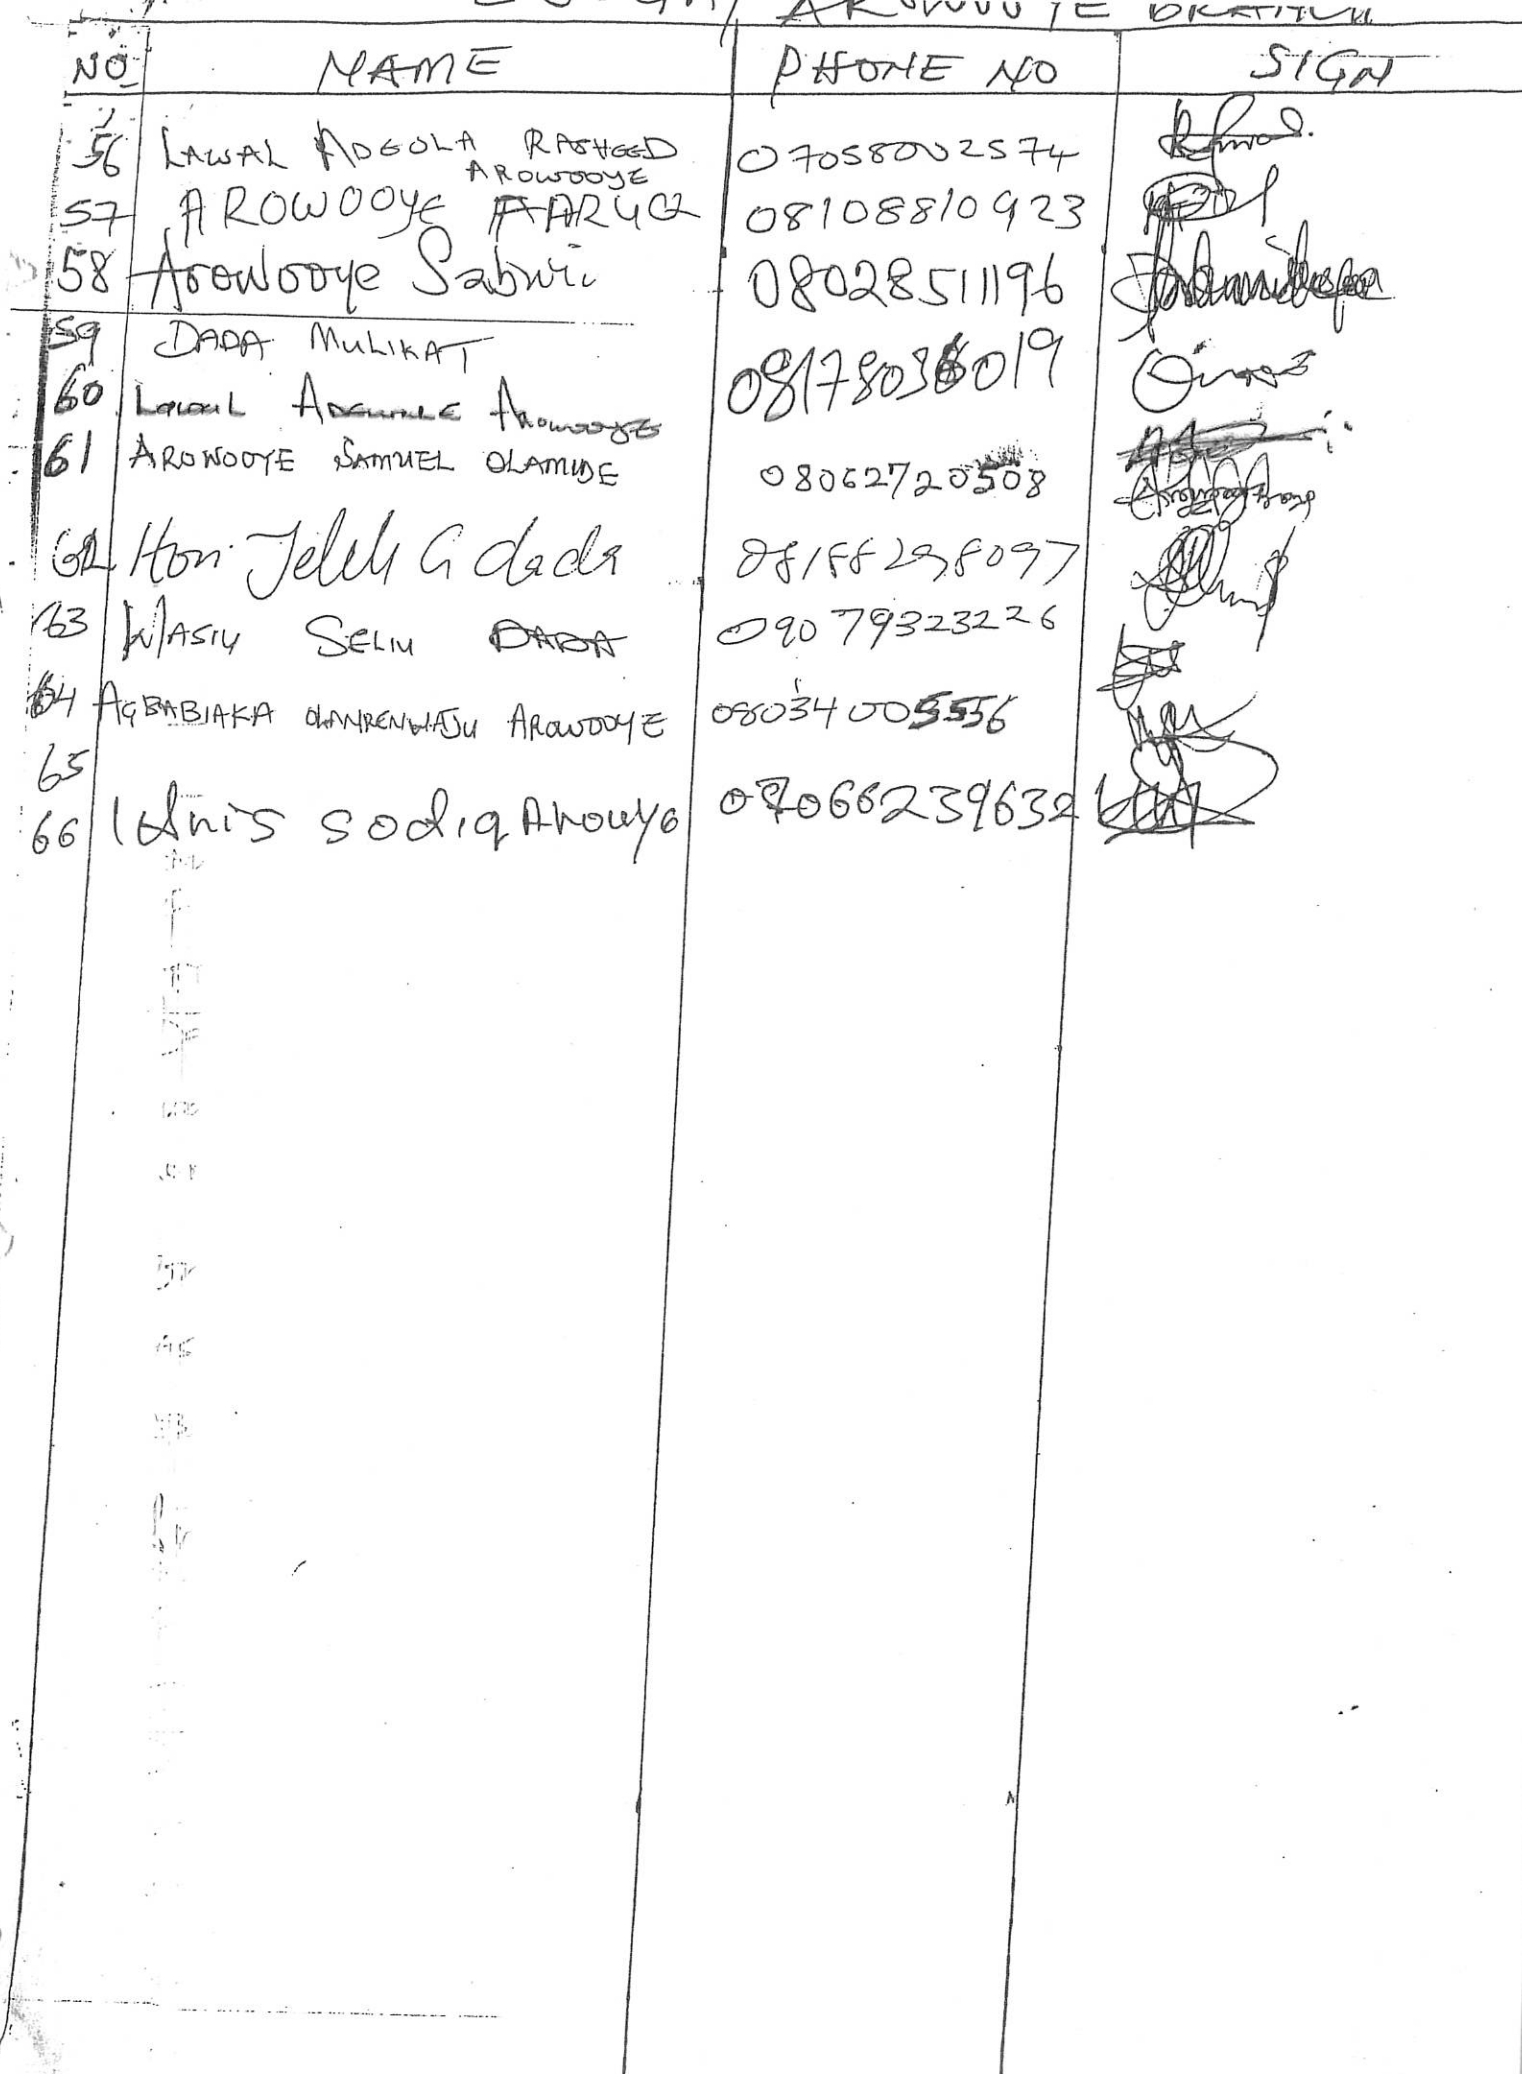 AROWOOYE BRANCH
NO NAME PHONE NO SIGN
56 LAWAL ADEOLA RASHEED 07058002574
AROWOOYE
57 AROWOOYE FARUQ 08108810923
58 Arowooye Sabwri 08028511196
59 DADA MULIKAT
60 Lawal Adewale Arowooye 08178036019
61 AROWOOYE SAMUEL OLAMIDE 08062720508
62 Hon. Jelili G dada 08188298097
63 WASIU SELIU DADA 09079323226
64 AGBABIAKA OLANREWAJU AROWOOYE 08034005556
65
66 Idris sodiq Arowyo 07066239632